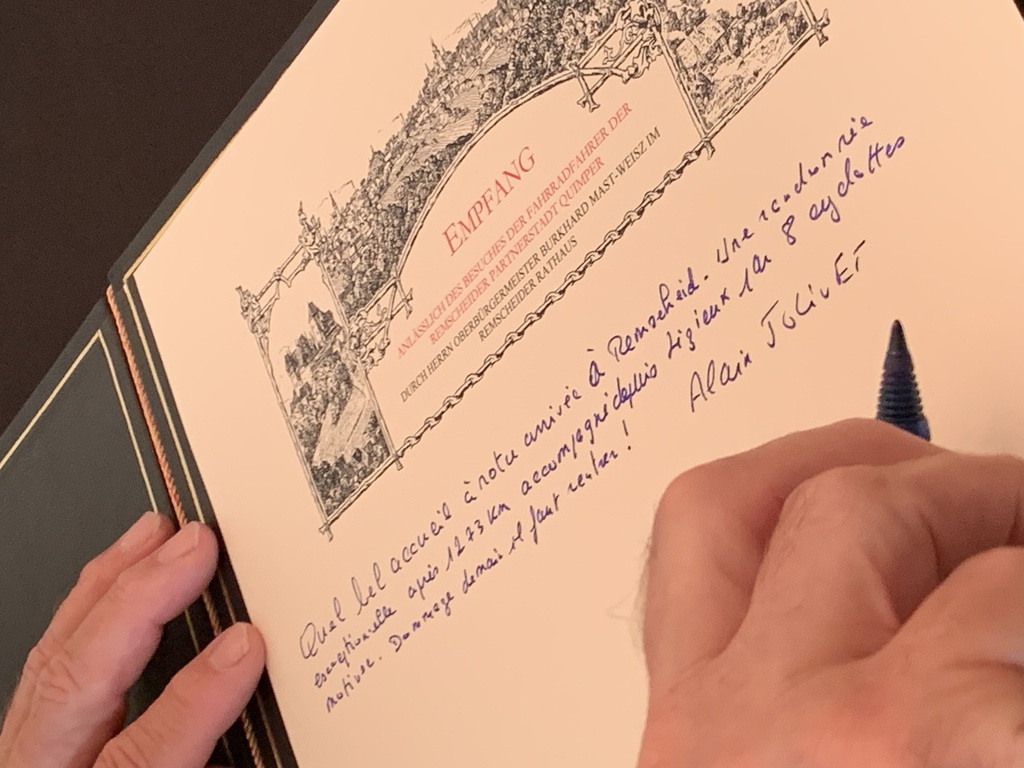 EMPFANG
ANLÄSSLICH DES BESUCHES DER FAHRRADFAHRER DER
REMSCHEIDER PARTNERSTADT QUIMPER
DURCH HERRN OBERBÜRGERMEISTER BURKHARD MAST-WEISZ IM
REMSCHEIDER RATHAUS
Quel bel accueil à notre arrivée à Remscheid. Une randonnée
exceptionnelle après 1273 km accompagné depuis Ligieux par 8 cyclottes
motivée. Dommage demain il faut rentrer !
Alain JOLIVET